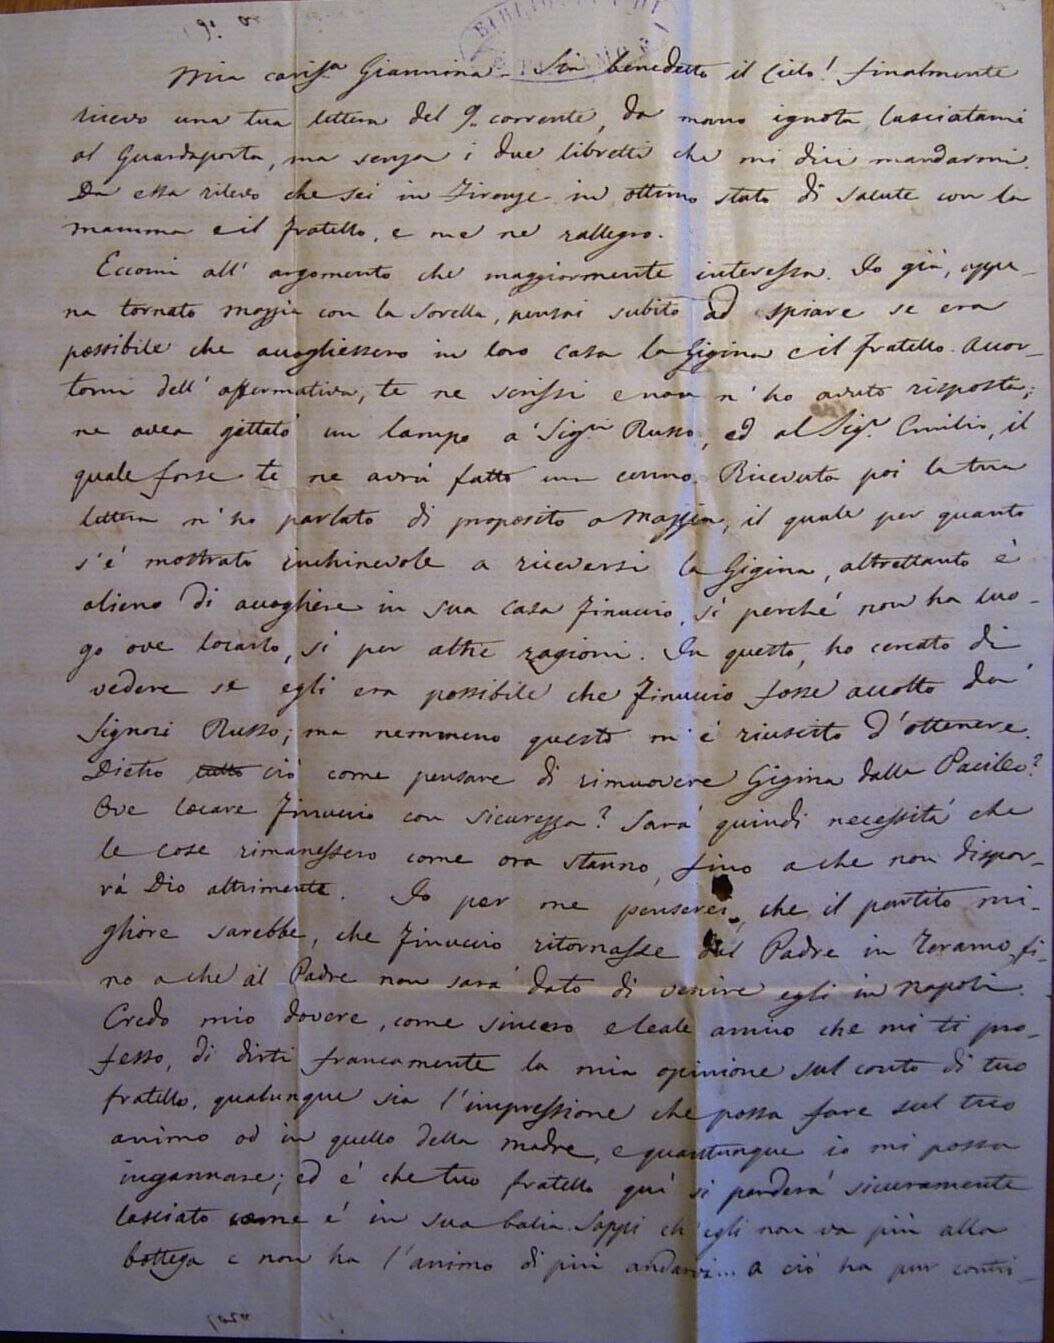 Mia cariss.a Giannina. Sia benedetto il Cielo! Finalmente
ricevo una tua lettera del 9. corrente, da mano ignota lasciatami
al Guardaporta, ma senza i due libretti che mi dici mandarmi.
Da essa rilevo che sei in Firenze in ottimo stato di salute con la
mamma e il fratello, e me ne rallegro.
Eccomi all' argomento che maggiormente interessa. Io già, appe-
na tornato Mazzia con la sorella, pensai subito ad spiare se era
possibile che accogliessero in loro casa la Gigina e il fratello. Accor-
tomi dell' affermativa, te ne scrissi e non n' ho avuto risposta;
ne avea gittato un lampo a' Sig.ri Russo, ed al Sig.r Emilio, il
quale forse te ne avrà fatto un cenno. Ricevuta poi la tua
lettera n' ho parlato di proposito a Mazzia, il quale per quanto
s' è mostrato inchinevole a riceversi la Gigina, altrettanto è
alieno di accogliere in sua casa Finuccio, sì perché non ha luo-
go ove locarlo, sì per altre ragioni. In questo, ho cercato di
vedere se egli era possibile che Finuccio fosse accolto da'
Signori Russo; ma nemmeno questo m' è riuscito d' ottenere.
Dietro tutto ciò come pensare di rimuovere Gigina dalla Pacileo?
Ove locare Finuccio con sicurezza? Sarà quindi necessità che
le cose rimanessero come ora stanno, fino a che non dispor-
rà Dio altrimenti. Io per me penserei, che il partito mi-
gliore sarebbe, che Finuccio ritornasse dal Padre in Teramo, fi-
no a che al Padre non sarà dato di venire egli in Napoli.
Credo mio dovere, come sincero e leale amico che mi ti pro-
fesso, di dirti francamente la mia opinione sul conto di tuo
fratello, qualunque sia l' impressione che possa fare sul tuo
animo od in quello della madre, e quantunque io mi possa
ingannare; ed è che tuo fratello qui si perderà sicuramente
lasciato come è in sua balia. Sappi ch' egli non va più alla
bottega e non ha l' animo di più andarvi... a ciò ha pur contri-